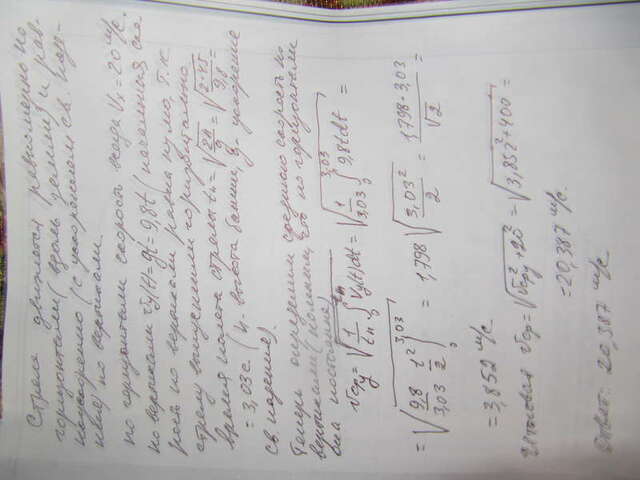 Стрела движется равномерно по
горизонтали (вдоль земли) и рав-
ноускоренно (с ускорением св. паде-
ния) по вертикали.
По горизонтали скорость всегда Vx = 20 м/с.
по вертикали Vy(t) = gt = 9,8t (начальная ско
рость по вертикали равна нулю, т.к.
стрелу выпустили горизонтально
время полета стрелы tп = √(2h/g) = √(2·45/9,8) =
= 3,03 с (h - высота башни, g - ускорение
св падения).
Теперь определим среднюю скорость по
вертикали (помним, что по горизонтали
она постоянна)
Vсрy = √(1/tп ∫₀^tп Vy(t)dt) = √(1/3,03 ∫₀^3,03 9,8tdt) =
= √(9,8/3,03 t²/2 |₀^3,03) = 1,798 √(3,03²/2) = 1,798·3,03/√2
= 3,852 м/с
Итоговая Vср = √(Vсрy² + 20²) = √(3,852² + 400) =
= 20,387 м/с.
Ответ: 20,387 м/с